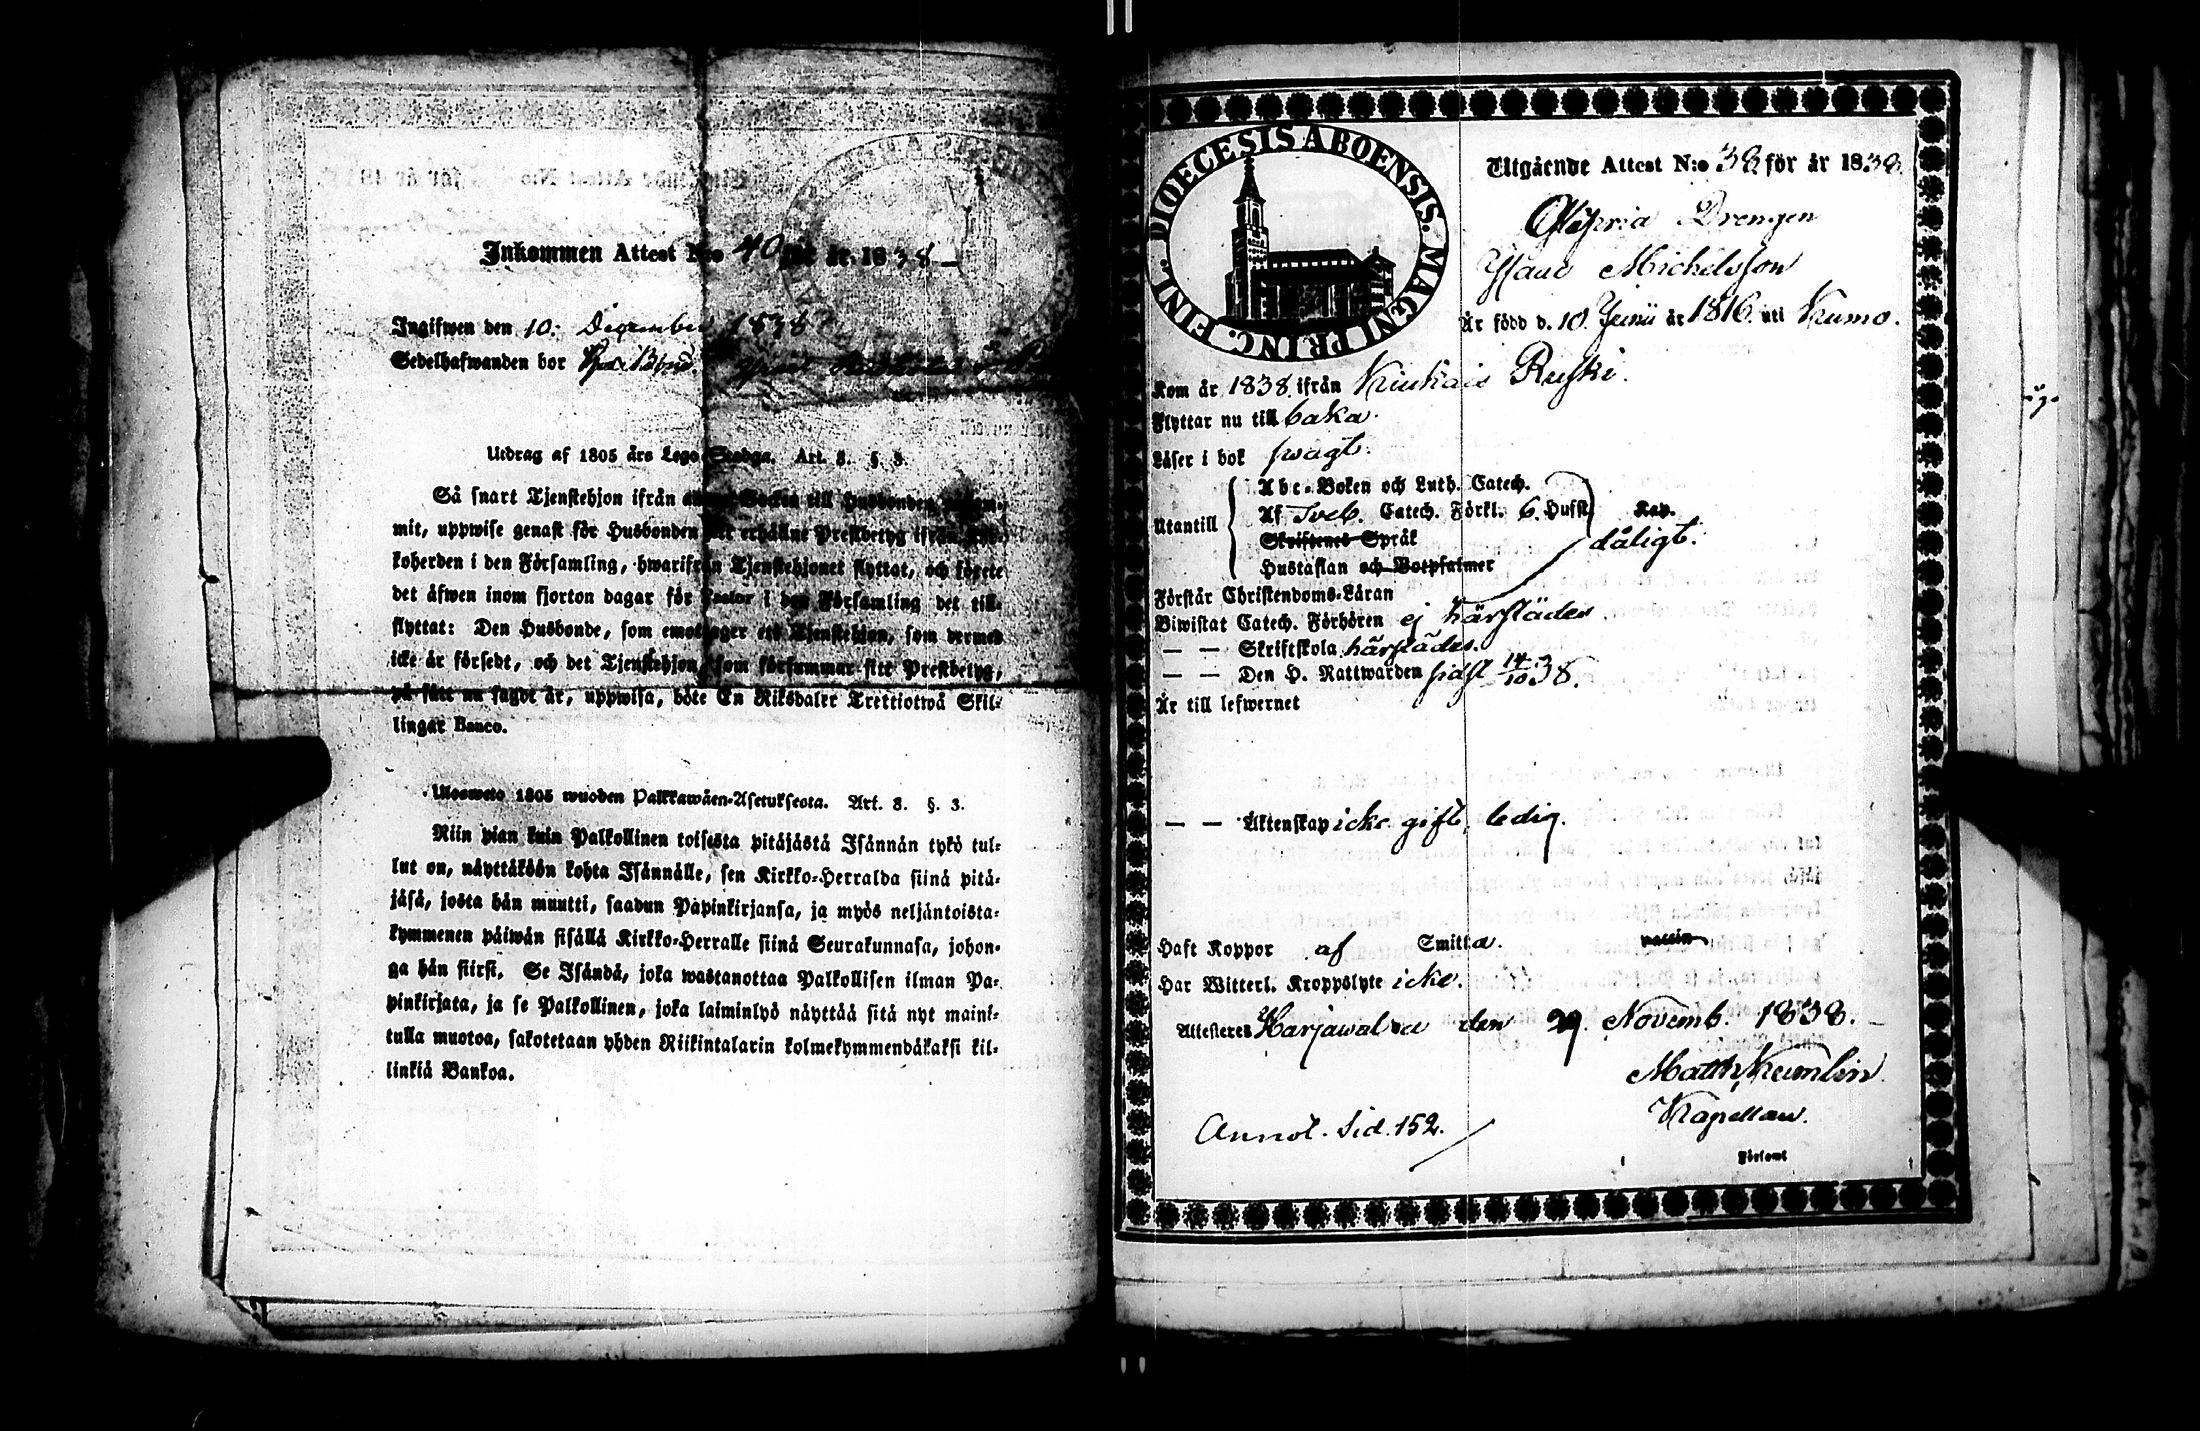 Inkommen Attest N:o 40 för år 1838
Ingifwen den 10: December 1838
Sedelhafwanden bor
Utdrag af 1805 års Lego-Stadga. Art. 3. §. 3.
Så snart Tjenstehjon ifrån annan Socken till Husbonden
mit, uppwise genast för Husbonden det erhållne Prestbetyg ifrån Kyr-
koherden i den Församling, hwarifrån Tjenstehjonet flyttat, och förete
det äfwen inom fjorton dagar för Pastor i den Församling det till-
flyttat: Den Husbonde, som emottager ett Tjenstehjon, som dermed
icke är försedt, och det Tjenstehjon, som försummar sitt Prestbetyg,
på sätt nu sagdt är, uppwisa, böte En Riksdaler Trettiotwå Skil-
lingar Banco.
Ulosweto 1805 wuoden Palkkawäen-Asetuksesta. Art. 3. §. 3.
Niin pian kuin Palkollinen toisesta pitäjästä Isännän tykö tul-
lut on, näyttäköön kohta Isännälle, sen Kirkko-Herralda siinä pitä-
jäsä, josta hän muutti, saadun Papinkirjansa, ja myös neljäntoista-
kymmenen päiwän sisällä Kirkko-Herralle siinä Seurakunnasa, johon-
ga hän siirsi. Se Isändä, joka wastanottaa Palkollisen ilman Pa-
pinkirjata, ja se Palkollinen, joka laiminlyö näyttää sitä nyt maini-
tulla muotoa, sakotetaan yhden Riikintalarin kolmekymmendäkaksi kil-
linkiä Bankoa.
DIOECESIS ABOENSIS. MAGNI PRINC. FINL.
Utgående Attest N:o 38 för år 1838
Drengen
Isaac Michelsson
Är född d. 10. Junii år 1816. uti Kumo.
Kom år 1838. ifrån Kiukais Ruski.
Flyttar nu till baka.
Läser i bok swagt.
Utantill
Abc-Boken och Luth. Catech.
Af Sveb. Catech. Förkl. 6. Hufst. Kap.
Skriftenes Språk
dåligt.
Hustaflan och Botpsalmer
Förstår Christendoms-Läran
Biwistat Catech. Förhören ej härstädes.
— — Skriftskola härstädes.
— — Den H. Nattwarden sidst 14/10 38.
Är till lefwernet
— — Äktenskap icke gift, ledig.
Haft Koppor af Smitta. vaccin
Har Witterl. Kroppslyte icke.
Attesteres Harjawalda den 29. Novemb. 1838.
Matth. Kumlin
Kapellan.
Församl
Annot. Sid. 152.